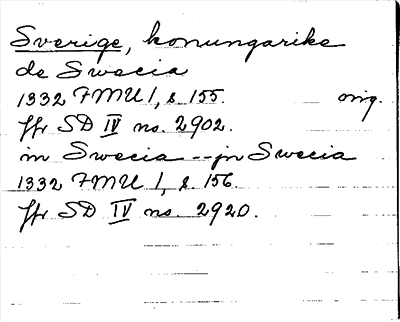 Sverige, konungarike
de Swecia
1332 FMU 1, s. 155. orig.
ffr SD IV no. 2902.
in Swecia -- jn Swecia
1332 FMU 1, s. 156.
ffr SD IV no. 2920.